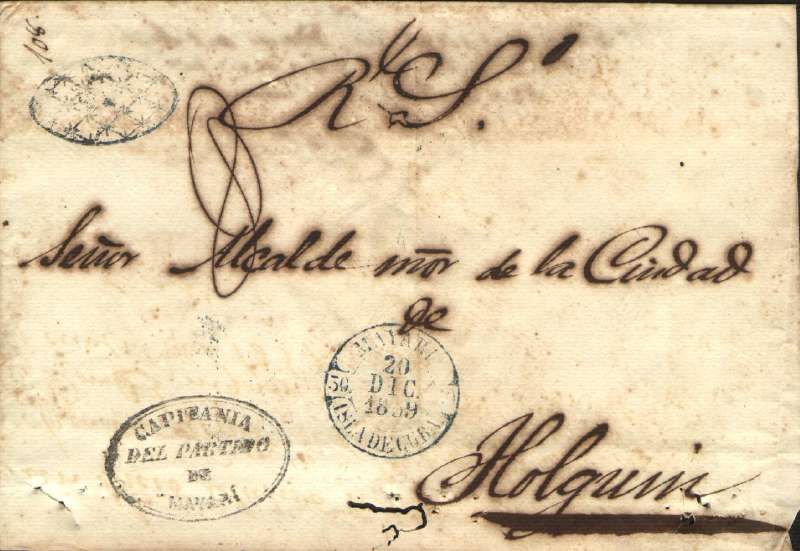 108.
Rl. S.º
Señor Alcalde mõr de la Ciudad
de
Holguin
MAYARI
20
DIC.
1859
50
ISLA DE CUBA
CAPITANIA
DEL PARTIDO
DE
MAYARÍ